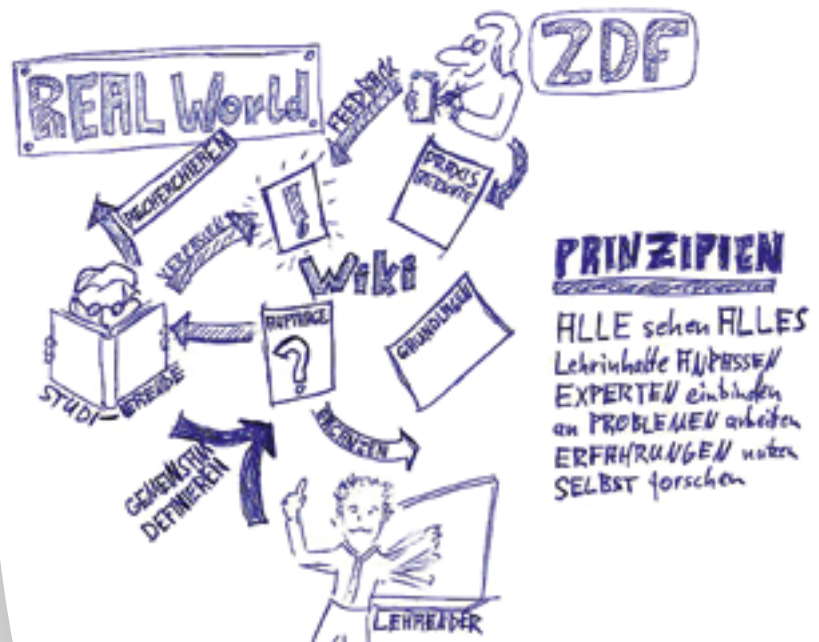 REAL World
ZDF
FEEDBACK
PRAXIS
RECHERCHIEREN
VERFASSEN
!
Wiki
AUFTRÄGE
?
GRUNDLAGEN
STUDI-
GEMEINSAM
DEFINIEREN
LEHRENDER
PRINZIPIEN
ALLE sehen ALLES
Lehrinhalte ANPASSEN
EXPERTEN einbinden
an PROBLEMEN arbeiten
ERFAHRUNGEN nutzen
SELBST forschen